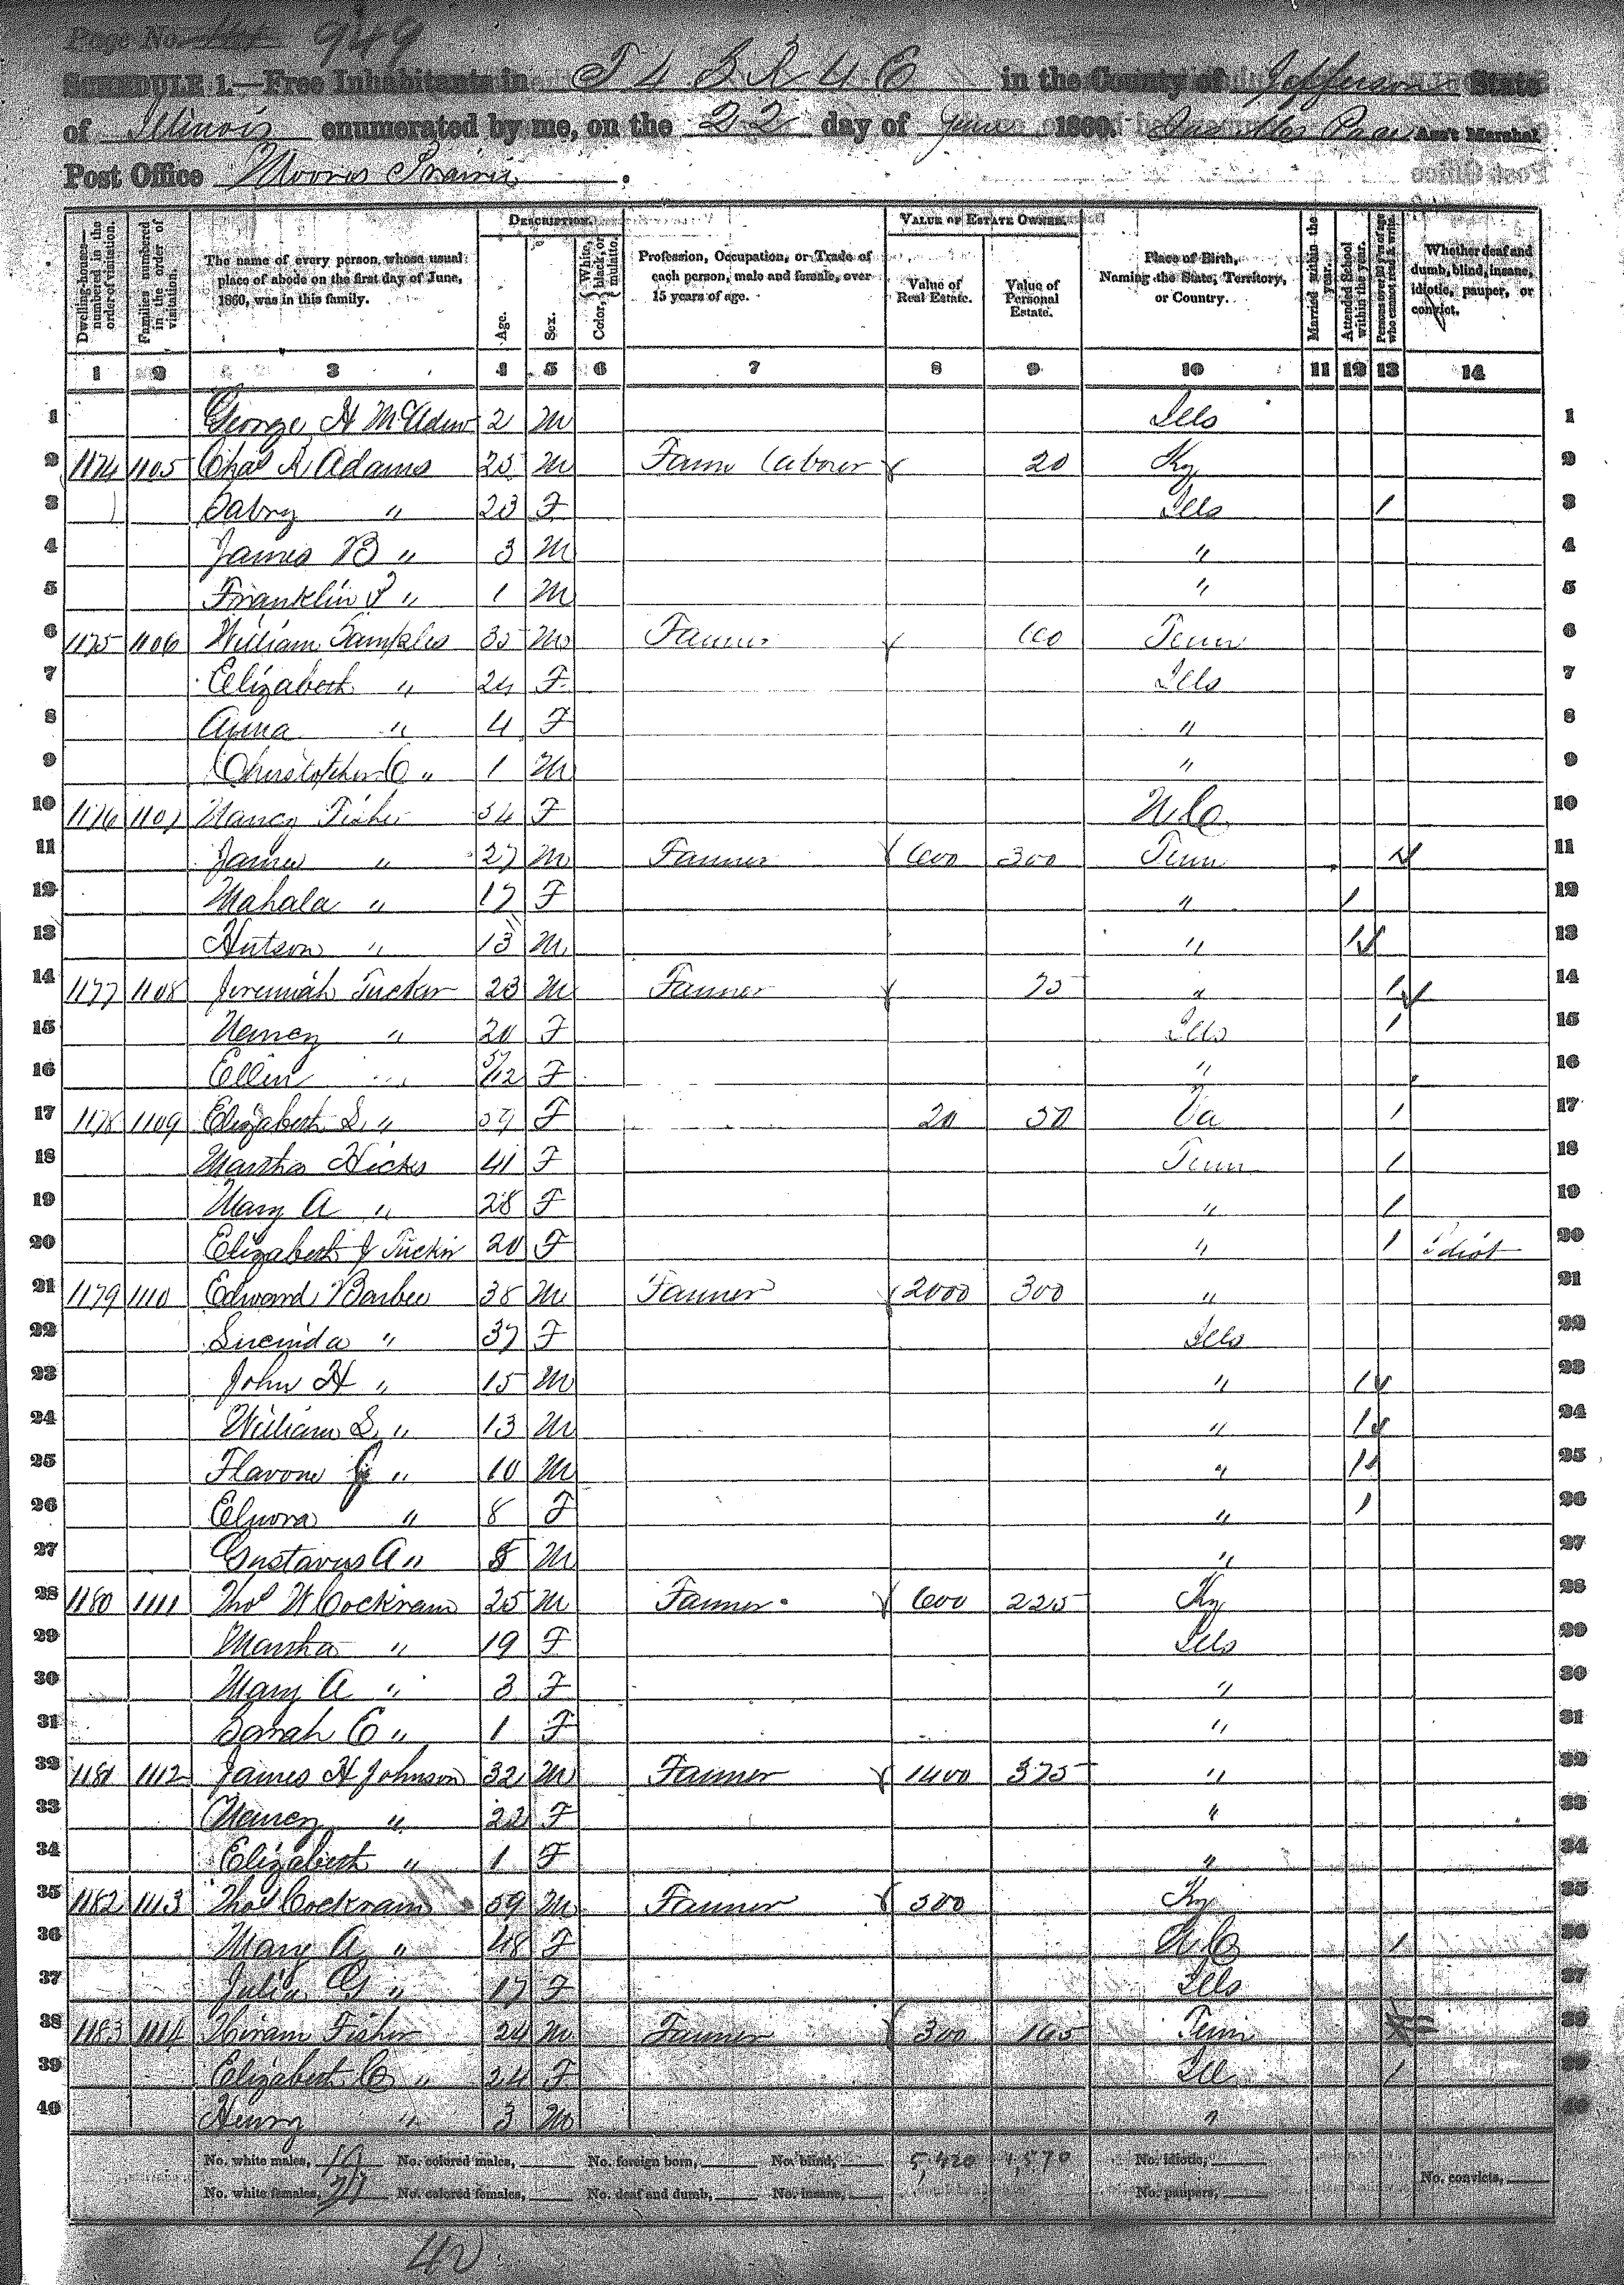 Page No. 949
SCHEDULE 1.—Free Inhabitants in T 4 S R 4 E in the County of Jefferson State
of Illinois enumerated by me, on the 22 day of June 1860. Ass't Marshal
Post Office Moores Prairie.
DESCRIPTION. VALUE OF ESTATE OWNED.
Dwelling-houses—numbered in the order of visitation. Families numbered in the order of visitation. The name of every person whose usual place of abode on the first day of June, 1860, was in this family. Age. Sex. Color, White, black, or mulatto. Profession, Occupation, or Trade of each person, male and female, over 15 years of age. Value of Real Estate. Value of Personal Estate. Place of Birth, Naming the State, Territory, or Country. Married within the year. Attended School within the year. Persons over 20 years of age who cannot read & write. Whether deaf and dumb, blind, insane, idiotic, pauper, or convict.
1 2 3 4 5 6 7 8 9 10 11 12 13 14
1 George H McAdew 2 M Ills 1
2 1174 1105 Chas R Adams 25 M Farm Laborer 20 Ky 2
3 23 F Ills 1 3
4 James B " 3 M " 4
5 Franklin P " 1 M " 5
6 1175 1106 William Samples 35 M Farmer 100 Tenn 6
7 Elizabeth " 24 F Ills 7
8 Anna " 4 F " 8
9 Christopher C " 1 M " 9
10 1176 1107 Nancy Fisher 54 F N C 10
11 James " 27 M Farmer 600 300 Tenn 1 11
12 Mahala " 17 F " 1 12
13 Hutson " 13 M " 1 13
14 1177 1108 Jeremiah Tucker 23 M Farmer 75 " 1 14
15 Nancy " 20 F Ills 1 15
16 Ellen " 5/12 F " 16
17 1178 1109 Elizabeth S " 59 F 20 50 Va 1 17
18 Martha Hicks 41 F Tenn 1 18
19 Mary A " 28 F " 1 19
20 Elizabeth J Tucker 20 F " 1 Idiot 20
21 1179 1110 Edward Barbee 38 M Farmer 2000 300 " 21
22 Lucinda " 37 F Ills 22
23 John H " 15 M " 1 23
24 William S " 13 M " 1 24
25 G " 10 M " 1 25
26 Elnora " 8 F " 1 26
27 Gustavus A " 5 M " 27
28 1180 1111 Thos W Cockram 25 M Farmer 600 225 Ky 28
29 Martha " 19 F Ills 29
30 Mary A " 3 F " 30
31 Sarah E " 1 F " 31
32 1181 1112 James H Johnson 32 M Farmer 1400 375 " 32
33 Nancy " 22 F " 33
34 Elizabeth " 1 F " 34
35 1182 1113 Thos Cockram 59 M Farmer 500 Ky 35
36 Mary A " 48 F N C 1 36
37 Julia G " 17 F Ills 37
38 1183 1114 Hiram Fisher 24 M Farmer 300 165 Tenn 38
39 Elizabeth C " 24 F Ill 1 39
40 Henry " 3 M " 40
No. white males, 19 No. colored males, No. foreign born, No. blind, 5,420 1,570 No. idiotic,
No. white females, 21 No. colored females, No. deaf and dumb, No. insane, No. paupers, No. convicts,
40